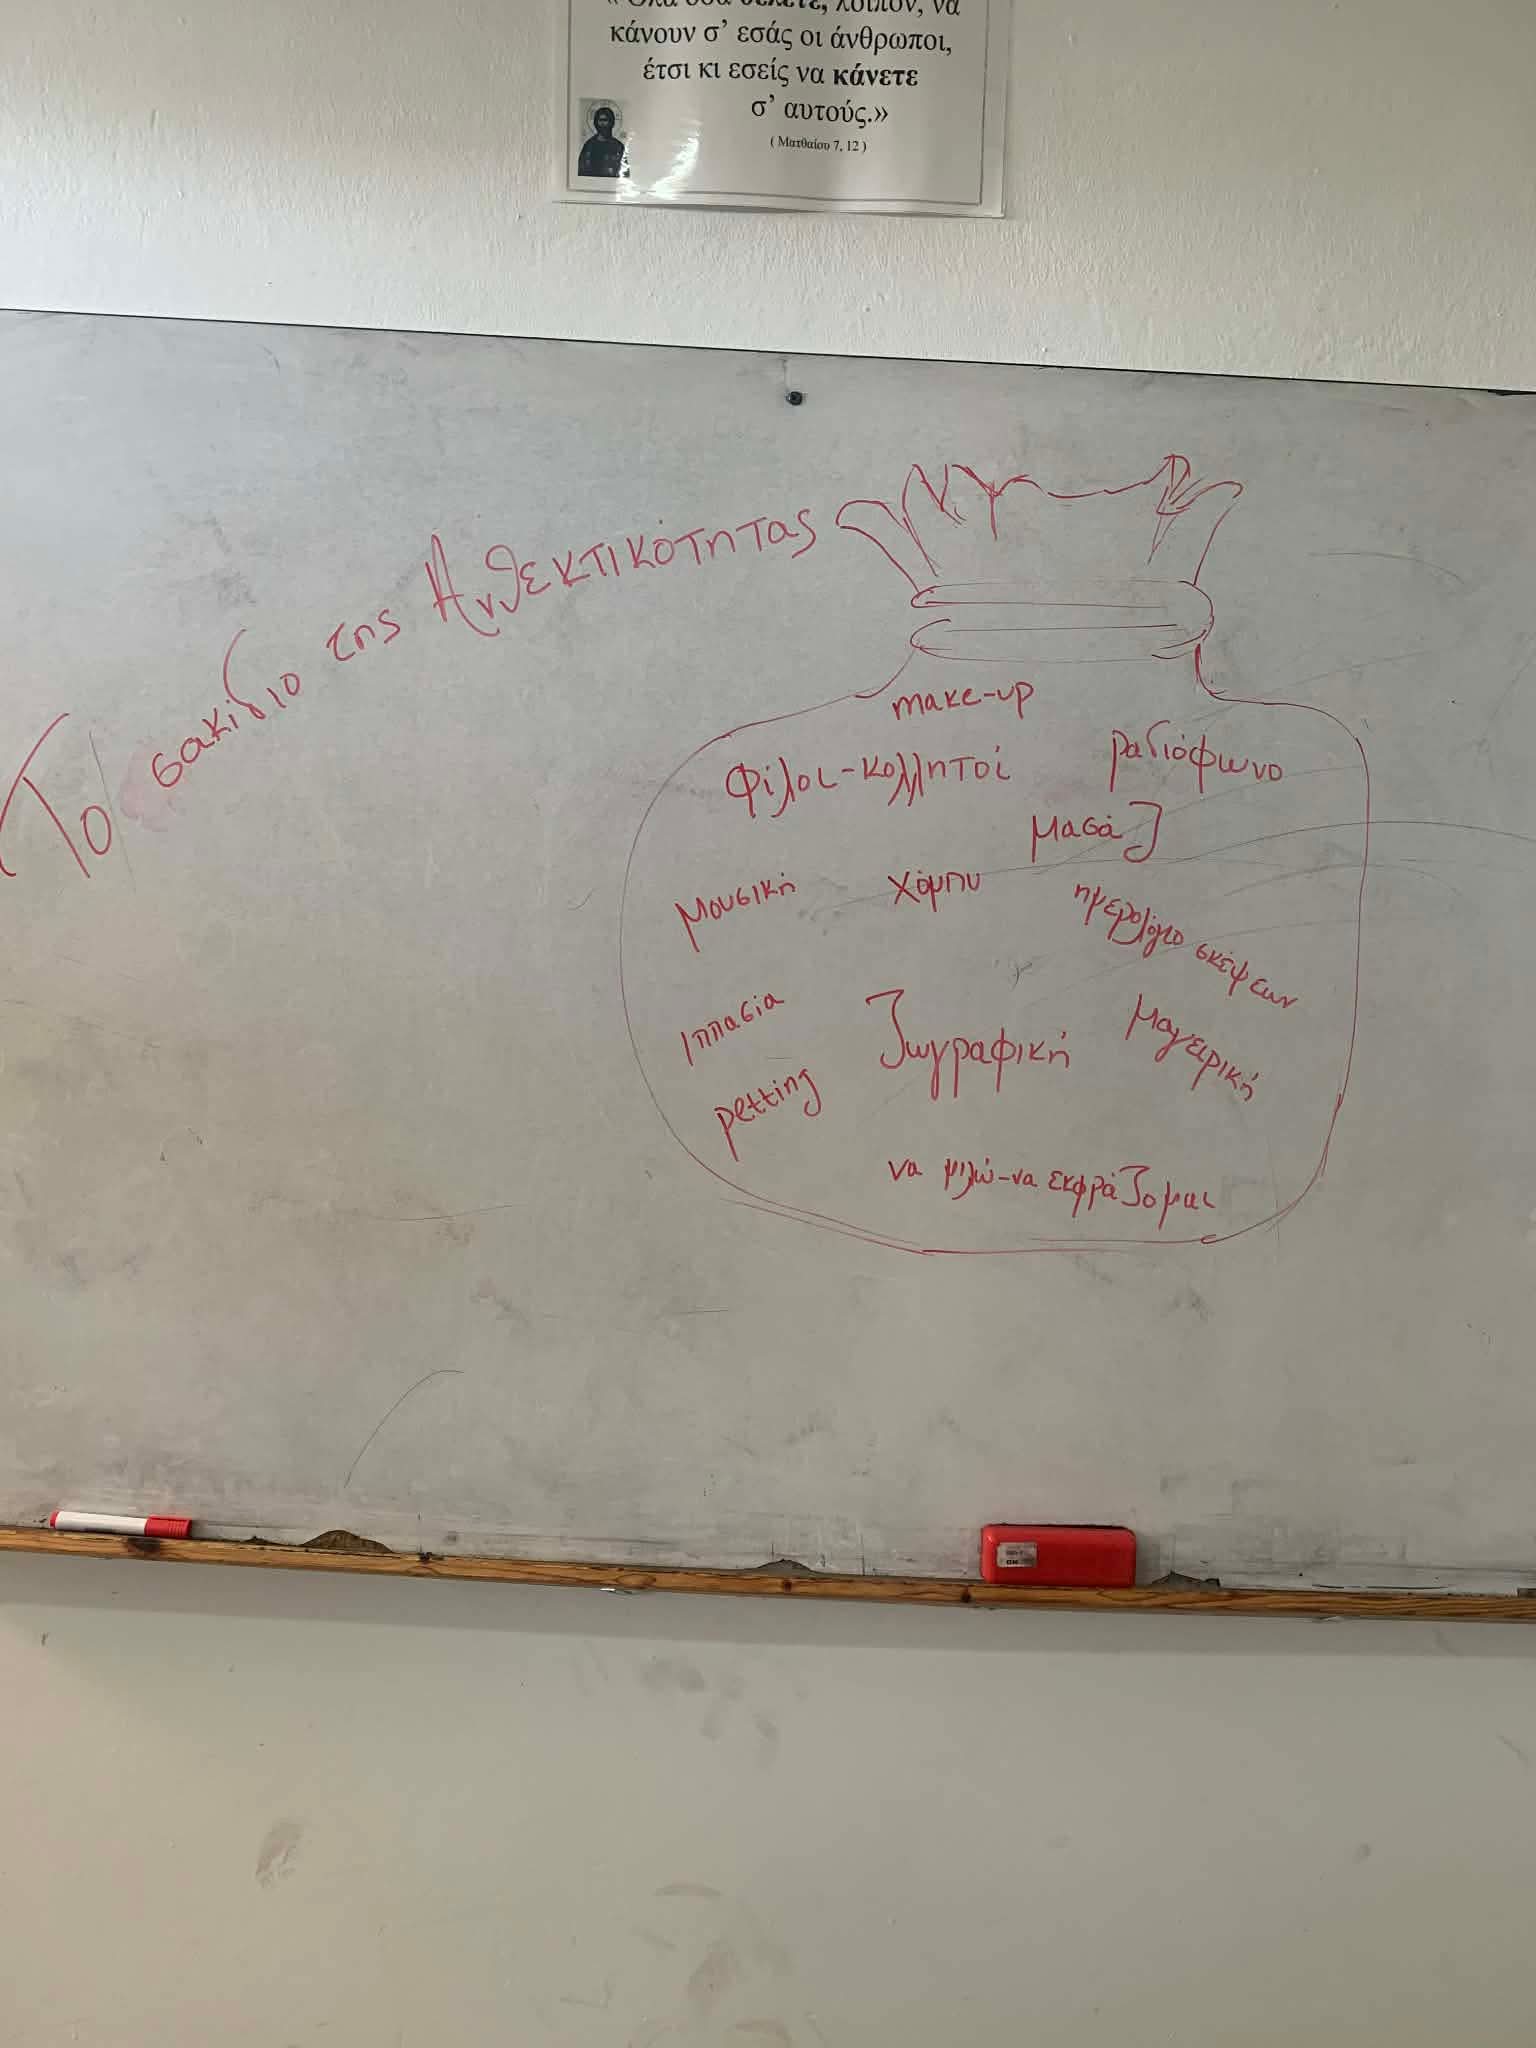 κάνουν σ’ εσάς οι άνθρωποι,
έτσι κι εσείς να κάνετε
σ’ αυτούς.»
( Ματθαίου 7, 12 )
Το σακίδιο της Ανθεκτικότητας
make-up
Φίλοι-κολλητοί
ραδιόφωνο
μασάζ
μουσική
χόμπυ
ημερολόγιο σκέψεων
Ιππασία
Ζωγραφική
Μαγειρική
petting
να μιλώ-να εκφράζομαι